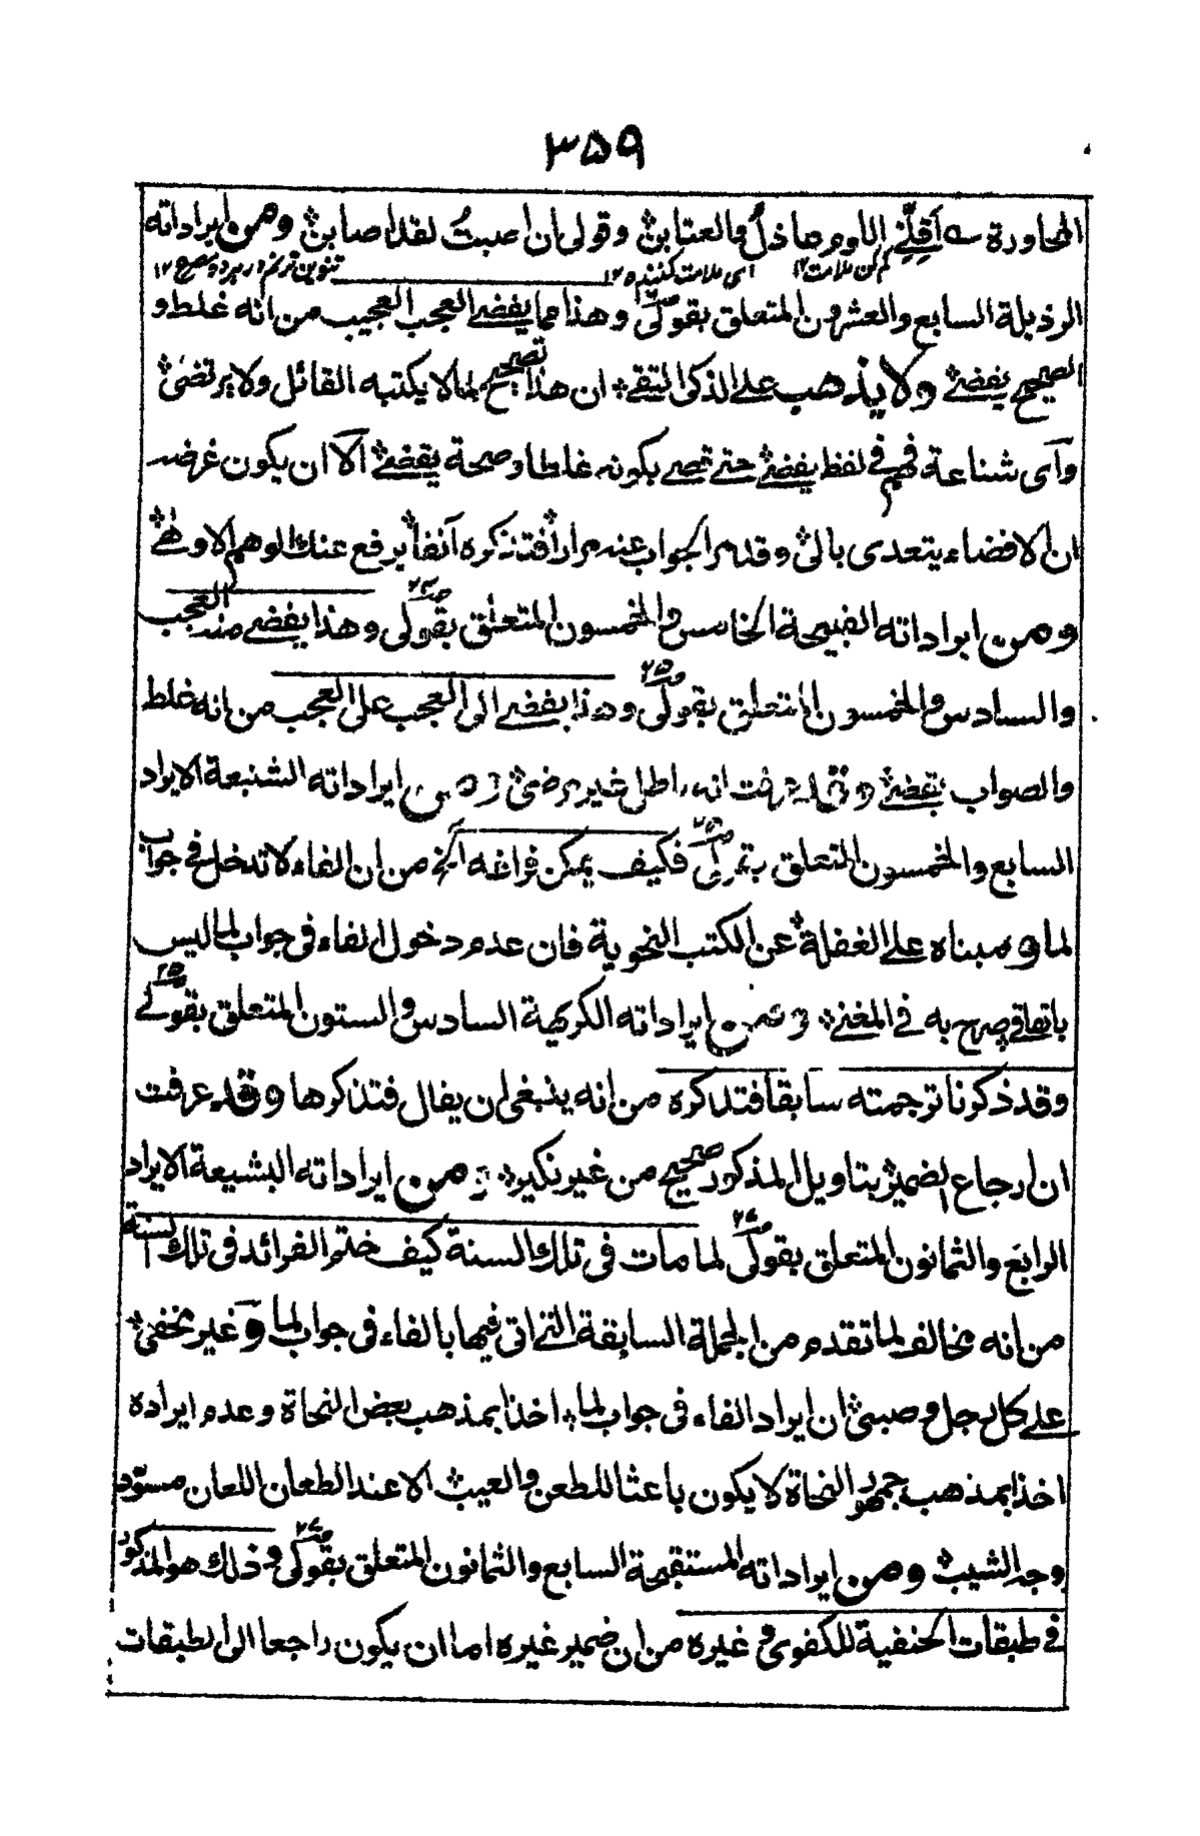 ۳۵۹
المحاورة ؎ أقلّي اللوم عاذلُ والعتابن وقولى ان اصبتُ لقد اصابن ومن ايراداته
كم كن ملامت ۱۲ اى ملامت كننده ۱۲ تنوين ترنم در هر دو مصرع ۱۲
الرذيلة السابع والعشرون المتعلق بقولى وهذا مما يفضى العجب العجيب من انه غلط و
الصحيح يفضى ولا يذهب على الذكى التقى ان هذا تصحيح لما لا يكتبه القائل ولا يرتضى
وآى شناعة فهم فى لفظ يفضى حتى تصى بكونه غلطا وصحة يقضى الا ان يكون غرضه
ان الافضاء يتعدى بالى وقد مر الجواب عنه مرارا فتذكره آنفا يرفع عنك الوهم الاوهى
ومن ايراداته القبيحة الخامس والخمسون المتعلق بقولى وهذا يفضى منه العجب
والسادس والخمسون المتعلق بقولى وهذا يفضى الى العجب على العجب من انه غلط
والصواب يقضى وقد عرفت انه باطل غير مرضى ومن ايراداته الشنيعة الايراد
السابع والخمسون المتعلق بقولى فكيف يمكن فراغه الخ من ان الفاء لا تدخل فى جواب
لما ومبناه على الغفلة عن الكتب النحوية فان عدم دخول الفاء فى جواب لما ليس
باتفاقى صرح به فى المغنى ومن ايراداته الكريهة السادس والستون المتعلق بقولى
وقد ذكرنا ترجمته سابقا فتذكره من انه ينبغى ان يقال فتذكرها وقد عرفت
ان ارجاع الضمير بتاويل المذكور صحيح من غير نكير ومن ايراداته البشيعة الايراد
الرابع والثمانون المتعلق بقولى لما مات فى تلك السنة كيف ختم الفرائد فى تلك السنة
من انه مخالف لما تقدم من الجملة السابقة التى اتى فيها بالفاء فى جواب لما و غير مخفى
على كل رجل وصبى ان ايراد الفاء فى جواب لما اخذا بمذهب بعض النحاة وعدم ايراده
اخذا بمذهب جمهور النحاة لا يكون باعثا للطعن والعيب الا عند الطعان اللعان مسوّد
وجه الشيب ومن ايراداته المستقبحة السابع والثمانون المتعلق بقولى وذلك هو المذكور
فى طبقات الحنفية للكفوى وغيره من ان ضمير غيره اما ان يكون راجعا الى الطبقات